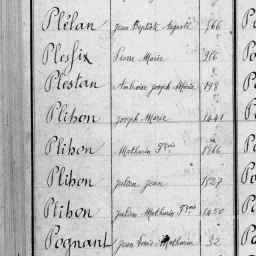 Plélan Jean Baptiste Auguste 566
Plesfix Pierre Marie 916
Plestan Ambroise Joseph Marie 198
Plihon Joseph Marie 1441
Plihon Mathurin Fcois 1366
Plihon Julien Jean 1527
Plihon Julien Mathurin Fcois 1450
Pognant Jean Louis Mathurin 32